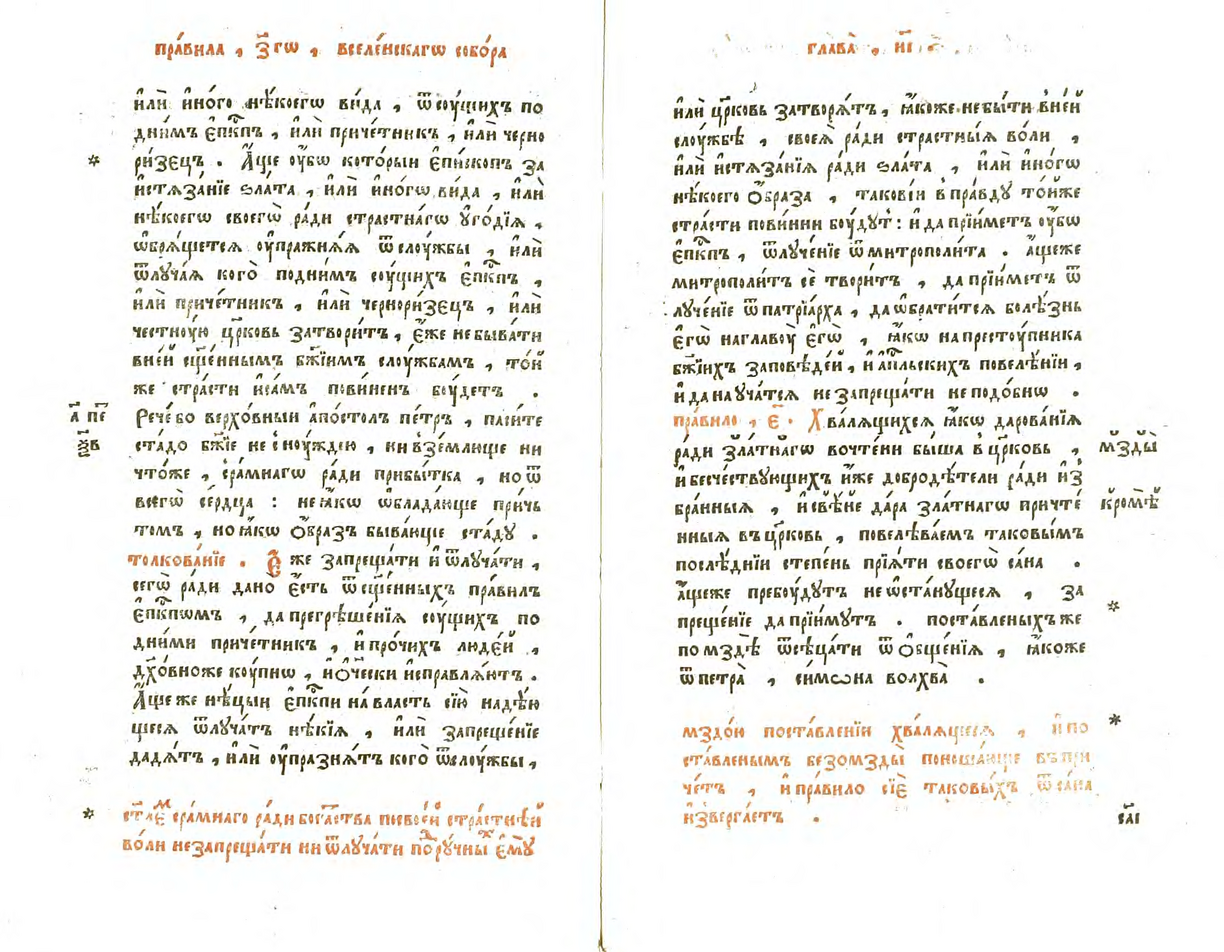 пра́вила , з҃гѡ , вселе́нскагѡ собо́ра
и҆лѝ и҆но́го нѣ́коегѡ ви́да , ѿ соу́щихъ по
дни́мъ є҆пⷭ҇кпъ , и҆лѝ приче́тникъ , и҆лѝ черно
ри́зецъ . А҆́ще оу҆́бѡ кото́рыи є҆пи́скопъ за
и҆стѧза́нїе ѕла́та , и҆лѝ и҆но́гѡ ви́да , и҆лѝ
нѣ́коегѡ своегѡ̀ ра́ди стра́стнагѡ оу҆го́дїѧ ,
ѡ҆брѧ́щетсѧ оу҆пражнѧ́ѧ ѿ слоу́жбы , и҆лѝ
ѿлуча́ѧ кого̀ подни́мъ соу́щихъ є҆пⷭ҇кпъ ,
и҆лѝ приче́тникъ , и҆лѝ черно́ри́зецъ , и҆лѝ
честноу́ю цр҃ковь затвори́тъ , є҆́же не быва́ти
вне́й сщ҃е́ннымъ бж҃їимъ слоу́жбамъ , то́й
же стра́сти и҆са́мъ пови́ненъ боу́детъ .
Рече́ бо верхо́вныи а҆по́столъ пе́тръ , паси́те
ста́до бж҃їе не с ноу́ждею , ни в̾зе́млюще ни
что́же , сра́мнагѡ ра́ди прибы́тка , но ѿ
всегѡ̀ се́рдца : не ꙗ҆́кѡ ѡ҆блада́юще при́чь
томъ , но ꙗ҆́кѡ о҆́бразъ быва́юще ста́ду .
толкова́нїе . Є҆́же запреща́ти и҆ ѿлуча́ти ,
сегѡ̀ ра́ди дано̀ є҆́сть ѿ сщ҃е́нныхъ пра́вилъ
є҆пⷭ҇кпѡмъ , да прегрѣше́нїѧ соу́щихъ по
дни́ми приче́тникъ , и҆ про́чихъ люде́й ,
дх҃о́вноже коу́пнѡ , и҆ ѻ҆́чески и҆справлѧ́ютъ .
А҆́ще же нѣ́цыи є҆пⷭ҇кпи на́ власть сїю̀ надѣ́ю
щесѧ ѿлуча́тъ нѣ́кїѧ , и҆лѝ запреще́нїе
дадѧ́тъ , и҆лѝ оу҆праздня́тъ кого̀ ѿ слоу́жбы ,
а҃ пе
ст҃ле́мъ сра́мнаго ра́ди бога́тства по свое́й стра́стнѣй
во́ли не запреща́ти ни ѿлуча́ти подрꙋ́чныхъ є҆мꙋ̀
глава̀ , н҃и .
и҆лѝ цр҃ковь затворѧ́тъ , ꙗ҆́коже не бы́ти вне́й
слоу́жбѣ , своеѧ̀ ра́ди стра́стныѧ во́ли ,
и҆лѝ и҆стѧза́нїѧ ра́ди ѕла́та , и҆лѝ и҆но́гѡ
нѣ́коего о҆́браза , такові́и в пра́вду то́йже
стра́сти пови́нни боу́дут : и҆ да прїи́метъ оу҆́бѡ
є҆пⷭ҇кпъ , ѿлуче́нїе ѿ митрополи́та . а҆́щеже
митрополи́тъ сѐ твори́тъ , да прїи́метъ ѿ
луче́нїе ѿ патрїа́рха , да ѡ҆брати́тсѧ болѣ́знь
є҆гѡ̀ на главоу̀ є҆гѡ̀ , ꙗ҆́кѡ на престоу́пника
бж҃їихъ за́повѣдей , и҆ а҆пⷭ҇льскихъ повелѣ́нїи ,
и҆ да науча́тсѧ не запреща́ти не подо́бнѡ .
пра́вило , є҃ . Хвалѧ́щихсѧ ꙗ҆́кѡ дарова́нїѧ
ра́ди зла́тнагѡ вочте́ни бы́ша в цр҃ковь ,
и҆ бесче́ствующихъ и҆́же добродѣ́тели ра́ди и҆з
бра́нныѧ , и҆ свѣ́не да́ра зла́тнагѡ причте́
нныѧ въ цр҃ковь , повелѣва́емъ таковы́мъ
послѣ́днїи степе́нь прїѧ́ти своегѡ̀ са́на .
а҆́щеже пребоу́дутъ не ѡ҆ста́нущесѧ , за
преще́нїе да прїи́мутъ . поста́вленыхъ же
по мздѣ̀ ѿсѣца́ти ѿ о҆бще́нїѧ , ꙗ҆́коже
ѿ петра̀ , си́мѡна волхва̀ .
мзды̀
кромѣ̀
мздо́ю поста́вленїи хва́лѧщесѧ , и҆ по
ста́вленымъ без̾ мзды̀ поноша́юще въ при
че́тъ , и҆ пра́вило сїѐ таковы́хъ ѿ са́на
и҆зверга́етъ .
с҃аі